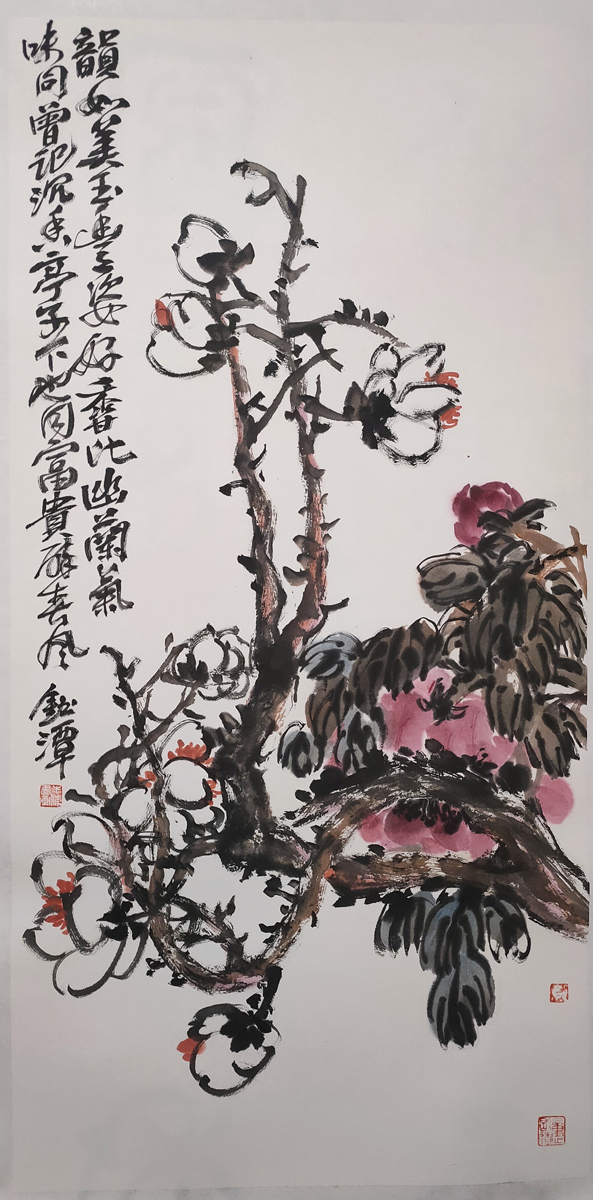 韻如美玉豐姿好香比幽蘭氣
味同曾记沉香亭子下也同富貴醉春风
潭